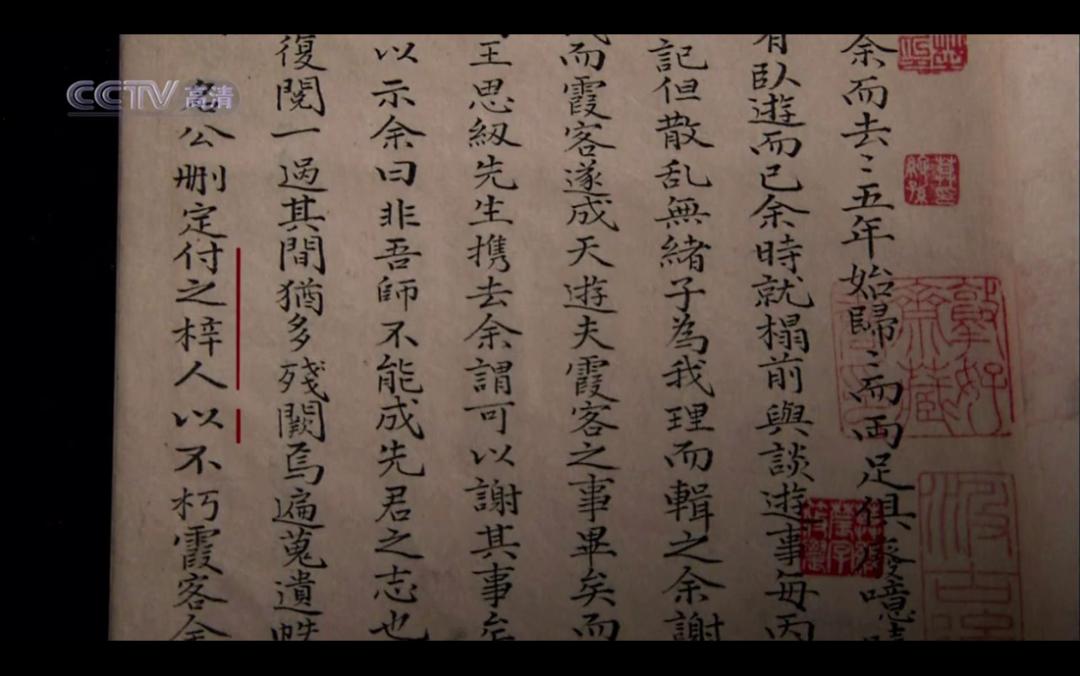 CCTV高清
余而去〻五年始歸〻而両足俱癈噫嘻
有臥遊而已余時就榻前與談遊事每丙
記但散乱無緒子為我理而輯之余謝
而霞客遂成天遊夫霞客之事畢矣而
王思䌹先生携去余謂可以謝其事矣
以示余曰非吾師不能成先君之志也
復閱一過其間猶多殘闕焉遍蒐遺帙
公刪定付之梓人以不朽霞客余